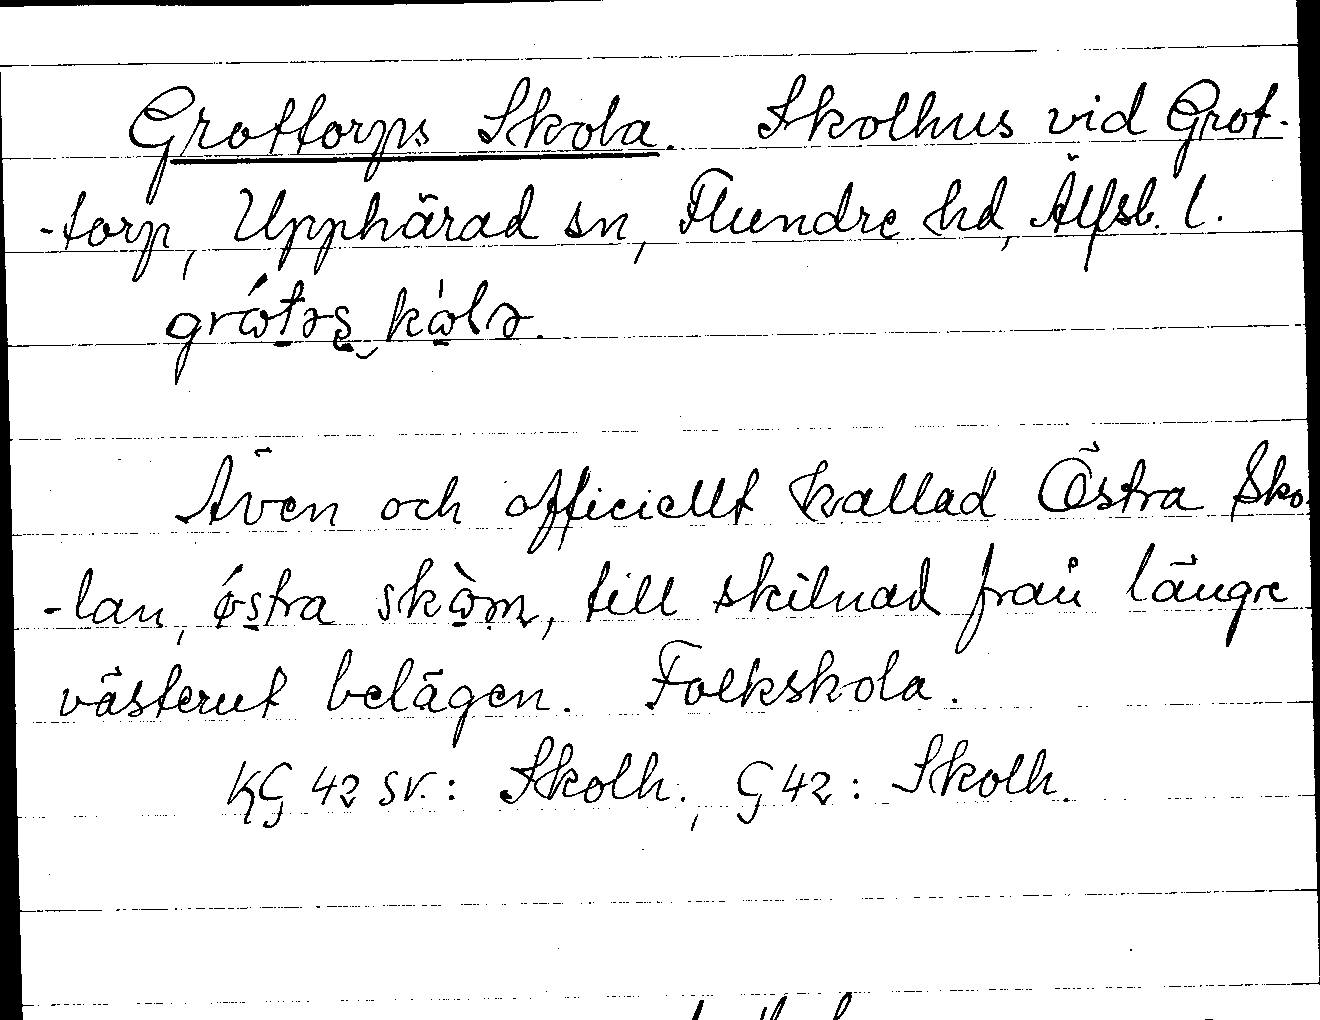 Grottorps Skola. Skolhus vid Grot-
-torp, Upphärad sn, Flundre hd, Älfsb. l.
Även och officiellt kallad Östra Sko-
-lan, östra skὼn, till skilnad från längre
västerut belägen. Folkskola.
KG 42 SV.: Skolh., G 42: Skolh.